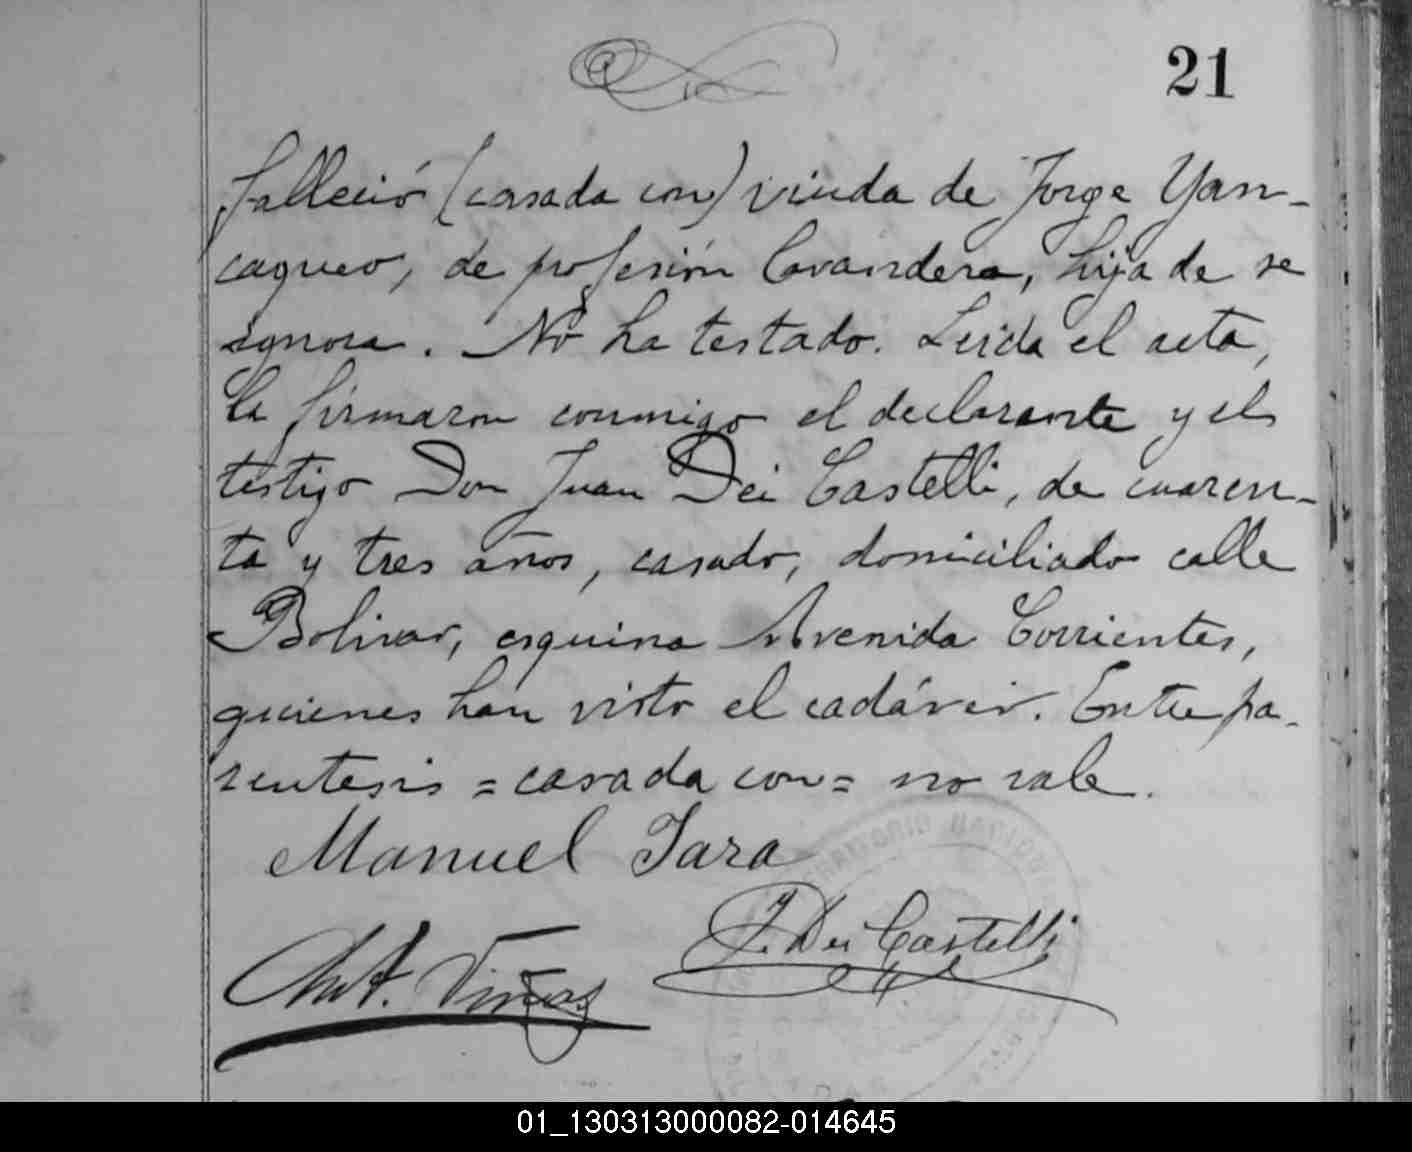 21
falleció (casada con) viuda de Jorge Yan-
caqueo, de profesión lavandera, hija de se
ignora. No ha testado. Leida el acta,
la firmaron conmigo el declarante y el
testigo Don Juan Dei Castelli, de cuaren-
ta y tres años, casado, domiciliado calle
Bolivar, esquina Avenida Corrientes,
quienes han visto el cadáver. Entre pa-
rentesis = casada con = no vale.
Manuel Jara
J. Dei Castelli
Ant. Viñas
01_130313000082-014645